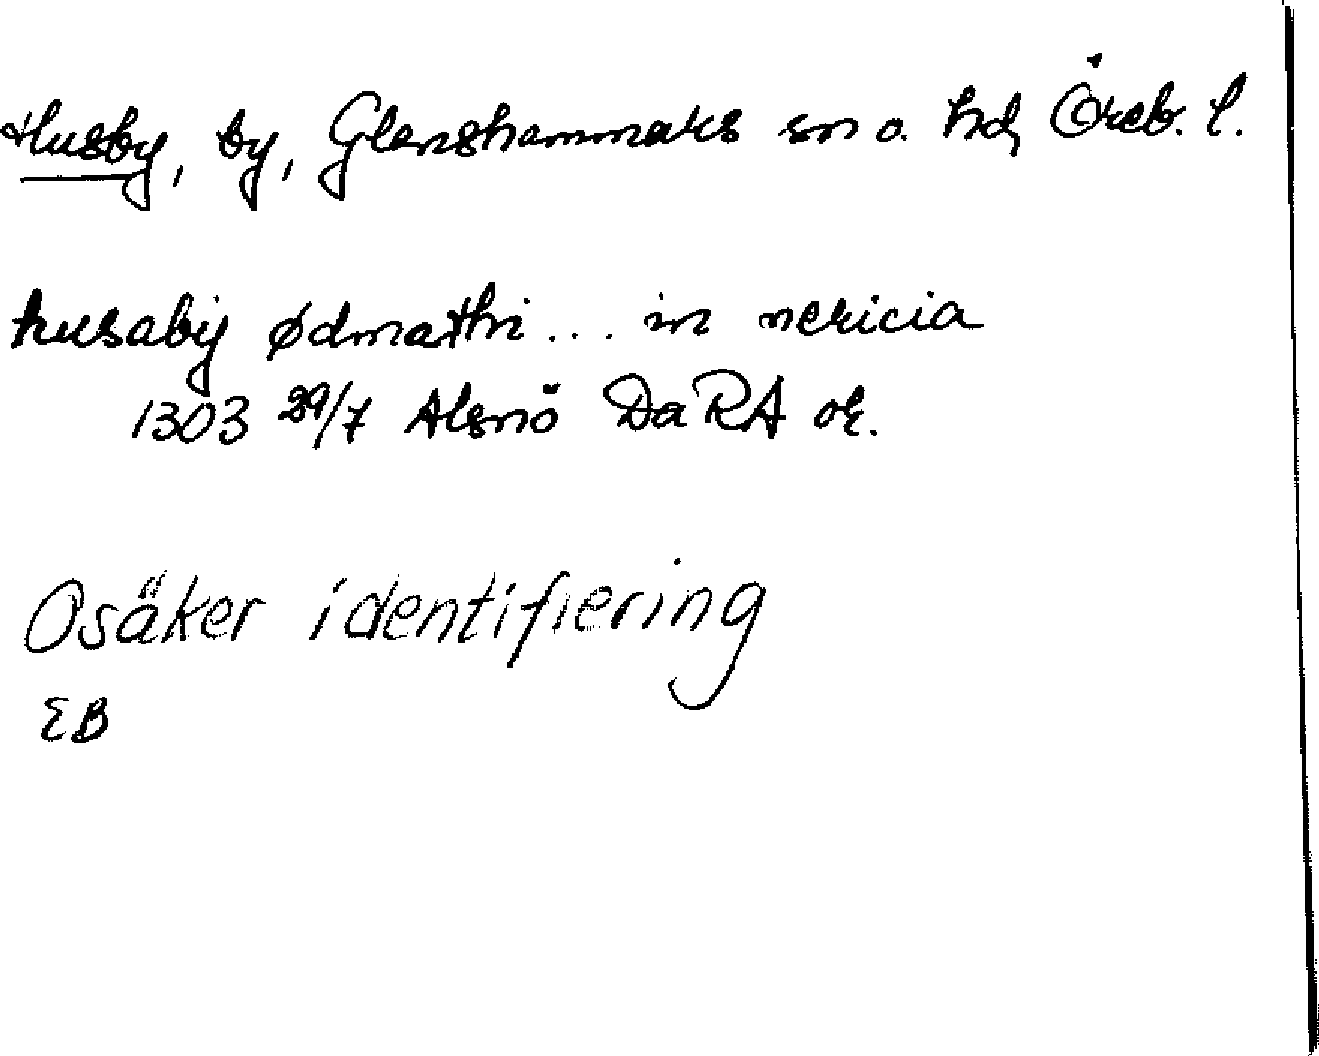 Husby, by, Glanshammars sn o. hd, Öreb. l.
husaby ødmathri... in nericia
1303 29/7 Alsnö Da RA or.
Osäker identifiering
EB